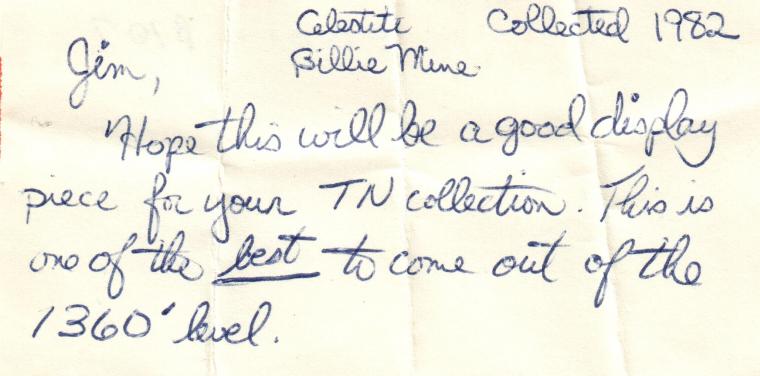 Celestite Collected 1982
Billie Mine
Jim,
Hope this will be a good display
piece for your TN collection. This is
one of the best to come out of the
1360' level.